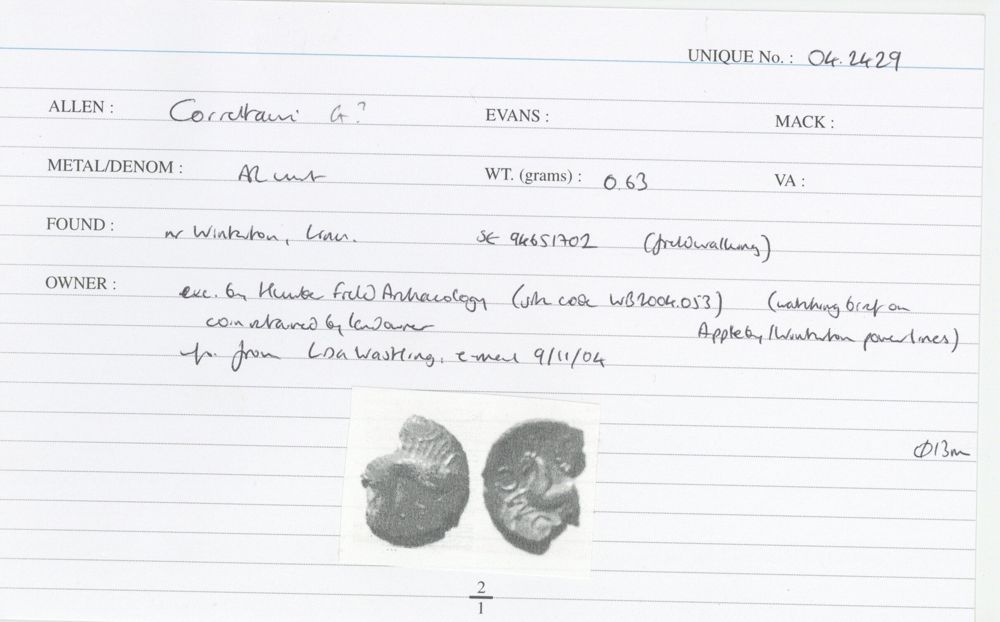 UNIQUE No. : 04.2429
ALLEN : Corieltauvi G? EVANS : MACK :
METAL/DENOM : AR unit WT. (grams) : 0.63 VA :
FOUND : nr Winterton, Lincs. SE 94651702 (fieldwalking)
OWNER : exc. by Humber Field Archaeology (site code WB2004.053) (watching brief on
coin retained by landowner Appleby/Winterton powerlines)
from Lisa Wastling, e-mail 9/11/04
Ø13m
2
1